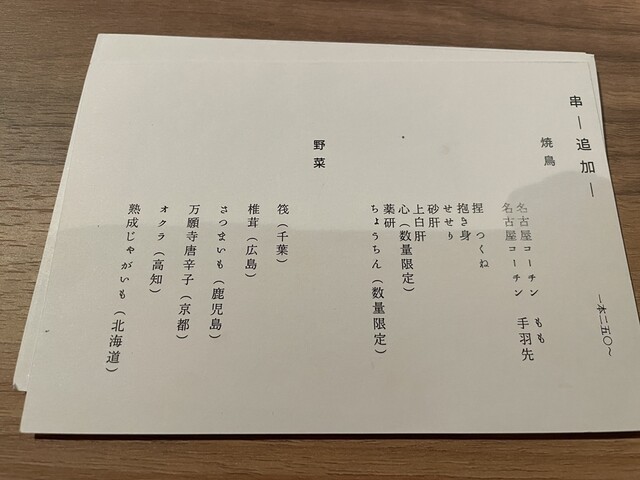 串―追加―
一本二五〇〜
焼鳥
名古屋コーチン もも
名古屋コーチン 手羽先
捏 つくね
抱き身
せせり
砂肝
上白肝
心(数量限定)
薬研
ちょうちん(数量限定)
野菜
筏(千葉)
椎茸(広島)
さつまいも(鹿児島)
万願寺唐辛子(京都)
オクラ(高知)
熟成じゃがいも(北海道)